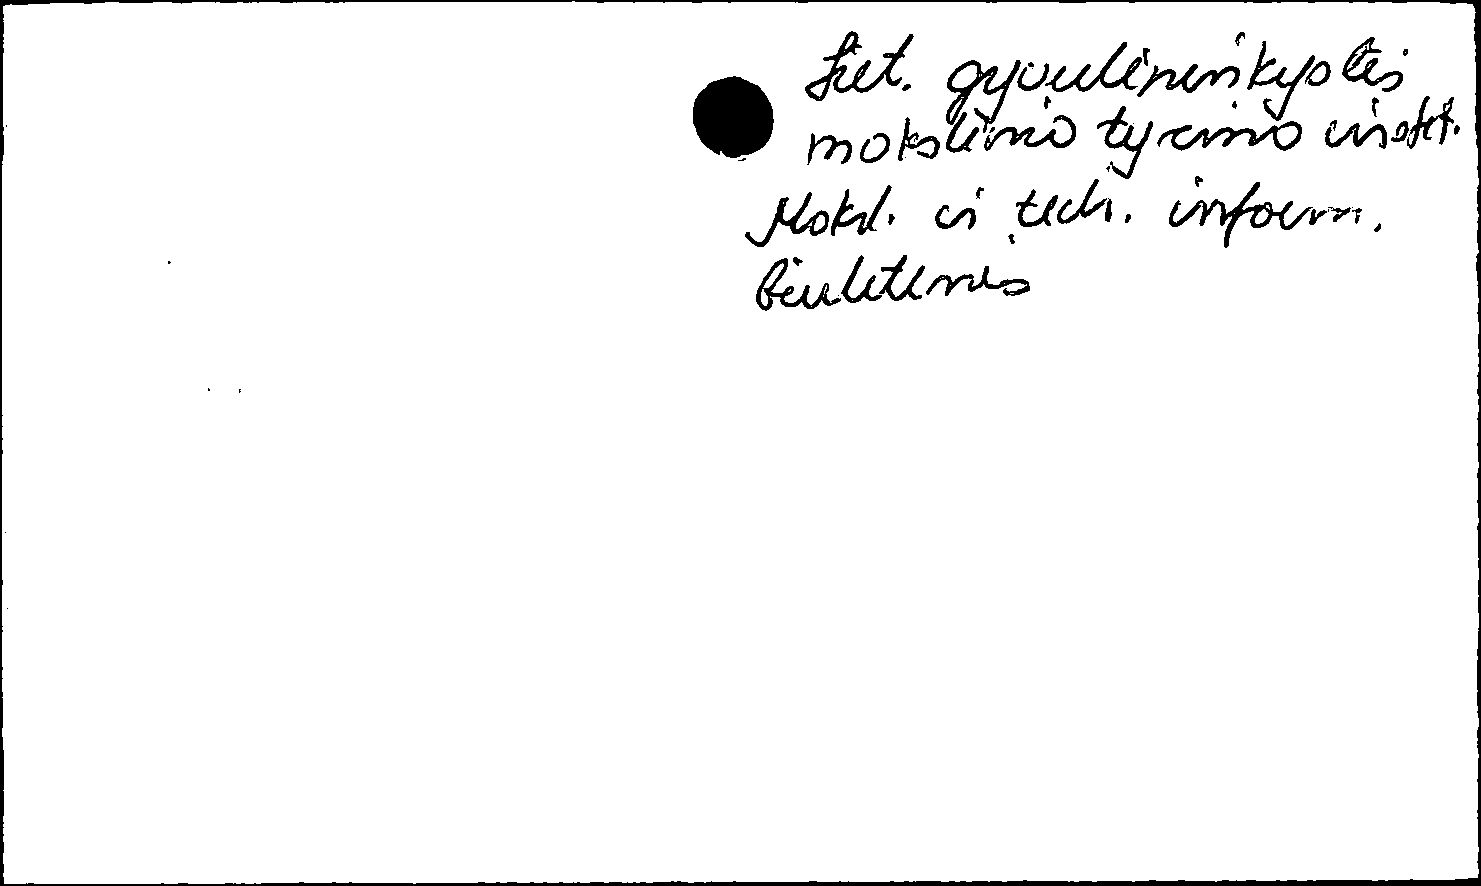 Liet. gyvulininkystės
mokslinio tyrimo instit.
Moksl. ir tech. inform.
biuletenis